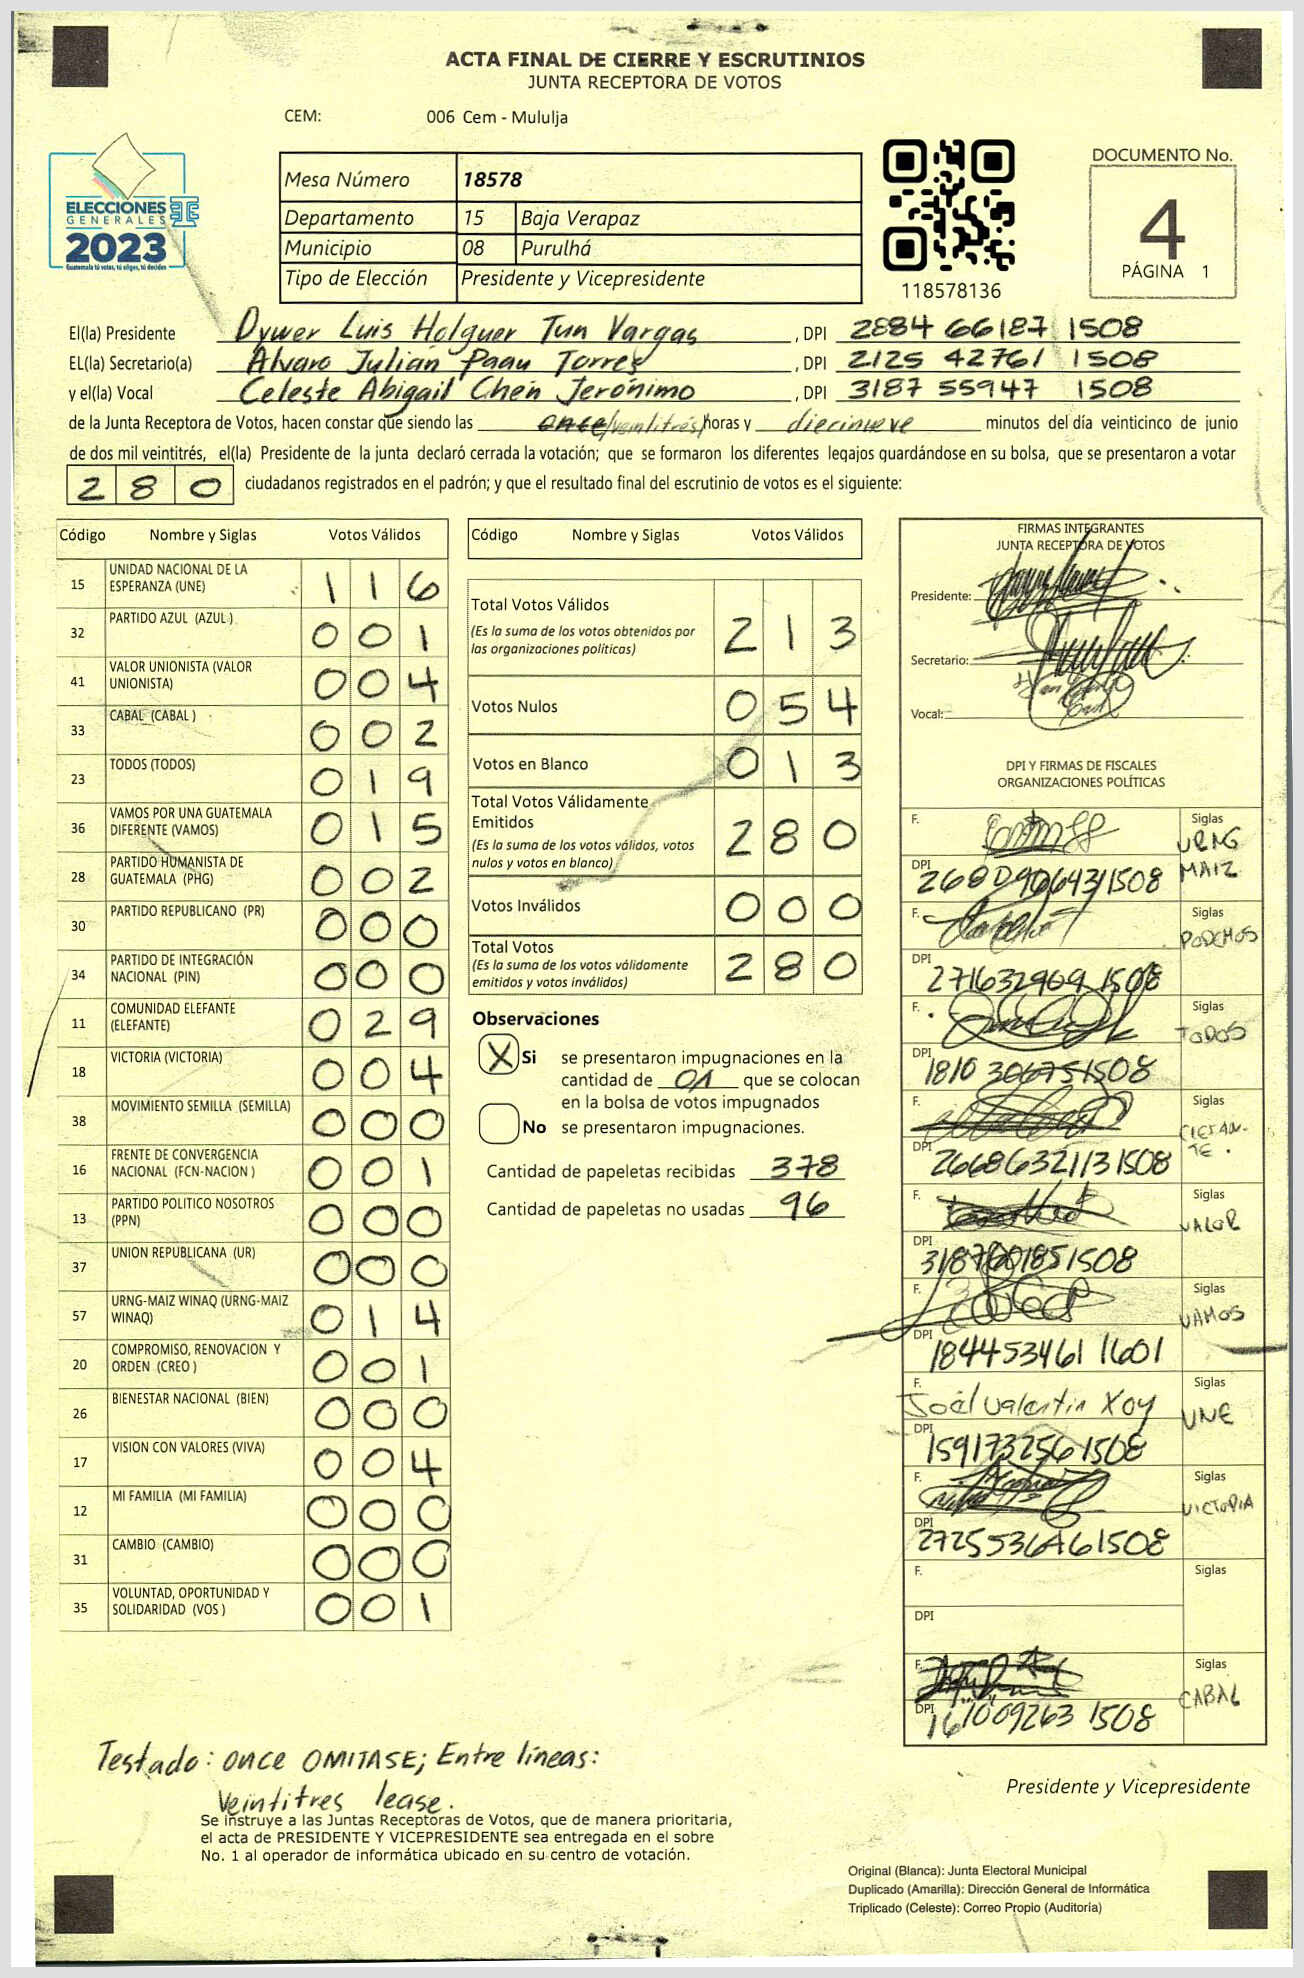 ACTA FINAL DE CIERRE Y ESCRUTINIOS
JUNTA RECEPTORA DE VOTOS
CEM: 006 Cem - Mululja
ELECCIONES
GENERALES
2023
Guatemala tú votas, tú eliges, tú decides
Mesa Número 18578
Departamento 15 Baja Verapaz
Municipio 08 Purulhá
Tipo de Elección Presidente y Vicepresidente
118578136
DOCUMENTO No.
4
PÁGINA 1
El(la) Presidente Dywer Luis Holguer Tun Vargas, DPI 2884 66187 1508
EL(la) Secretario(a) Alvaro Julián Paau Torres, DPI 2125 42761 1508
y el(la) Vocal Celeste Abigail Chén Jerónimo, DPI 3187 55947 1508
de la Junta Receptora de Votos, hacen constar que siendo las once/veintitrés/horas y diecinueve minutos del día veinticinco de junio
de dos mil veintitrés, el(la) Presidente de la junta declaró cerrada la votación; que se formaron los diferentes legajos guardándose en su bolsa, que se presentaron a votar
280 ciudadanos registrados en el padrón; y que el resultado final del escrutinio de votos es el siguiente:
Código Nombre y Siglas Votos Válidos
15 UNIDAD NACIONAL DE LA ESPERANZA (UNE) 116
32 PARTIDO AZUL (AZUL ) 001
41 VALOR UNIONISTA (VALOR UNIONISTA) 004
33 CABAL (CABAL ) 002
23 TODOS (TODOS) 019
36 VAMOS POR UNA GUATEMALA DIFERENTE (VAMOS) 015
28 PARTIDO HUMANISTA DE GUATEMALA (PHG) 002
30 PARTIDO REPUBLICANO (PR) 000
34 PARTIDO DE INTEGRACIÓN NACIONAL (PIN) 000
11 COMUNIDAD ELEFANTE (ELEFANTE) 029
18 VICTORIA (VICTORIA) 004
38 MOVIMIENTO SEMILLA (SEMILLA) 000
16 FRENTE DE CONVERGENCIA NACIONAL (FCN-NACION ) 001
13 PARTIDO POLITICO NOSOTROS (PPN) 000
37 UNION REPUBLICANA (UR) 000
57 URNG-MAIZ WINAQ (URNG-MAIZ WINAQ) 014
20 COMPROMISO, RENOVACION Y ORDEN (CREO ) 001
26 BIENESTAR NACIONAL (BIEN) 000
17 VISION CON VALORES (VIVA) 004
12 MI FAMILIA (MI FAMILIA) 000
31 CAMBIO (CAMBIO) 000
35 VOLUNTAD, OPORTUNIDAD Y SOLIDARIDAD (VOS ) 001
Código Nombre y Siglas Votos Válidos
Total Votos Válidos 213
(Es la suma de los votos obtenidos por
las organizaciones políticas)
Votos Nulos 054
Votos en Blanco 013
Total Votos Válidamente
Emitidos 280
(Es la suma de los votos válidos, votos
nulos y votos en blanco)
Votos Inválidos 000
Total Votos 280
(Es la suma de los votos válidamente
emitidos y votos inválidos)
Observaciones
X Si se presentaron impugnaciones en la
cantidad de 01 que se colocan
en la bolsa de votos impugnados
No se presentaron impugnaciones.
Cantidad de papeletas recibidas 378
Cantidad de papeletas no usadas 96
FIRMAS INTEGRANTES
JUNTA RECEPTORA DE VOTOS
Presidente:
Secretario:
Vocal:
DPI Y FIRMAS DE FISCALES
ORGANIZACIONES POLÍTICAS
F. Siglas URNG MAIZ
DPI
F. Siglas PODEMOS
DPI 271632909 1508
F. Siglas TODOS
DPI 1810 306751508
F. Siglas
DPI 2668632113 1508
F. Siglas VALOR
DPI
F. Siglas VAMOS
DPI 184453461 1601
F. Joél Valentin Xoy Siglas UNE
DPI 159173256 1508
F. Siglas VICTORIA
DPI
F. Siglas
DPI
F. Siglas CABAL
DPI 161009263 1508
Testado: ONCE OMITASE; Entre líneas:
Veintitres lease.
Se instruye a las Juntas Receptoras de Votos, que de manera prioritaria,
el acta de PRESIDENTE Y VICEPRESIDENTE sea entregada en el sobre
No. 1 al operador de informática ubicado en su centro de votación.
Presidente y Vicepresidente
Original (Blanca): Junta Electoral Municipal
Duplicado (Amarilla): Dirección General de Informática
Triplicado (Celeste): Correo Propio (Auditoría)